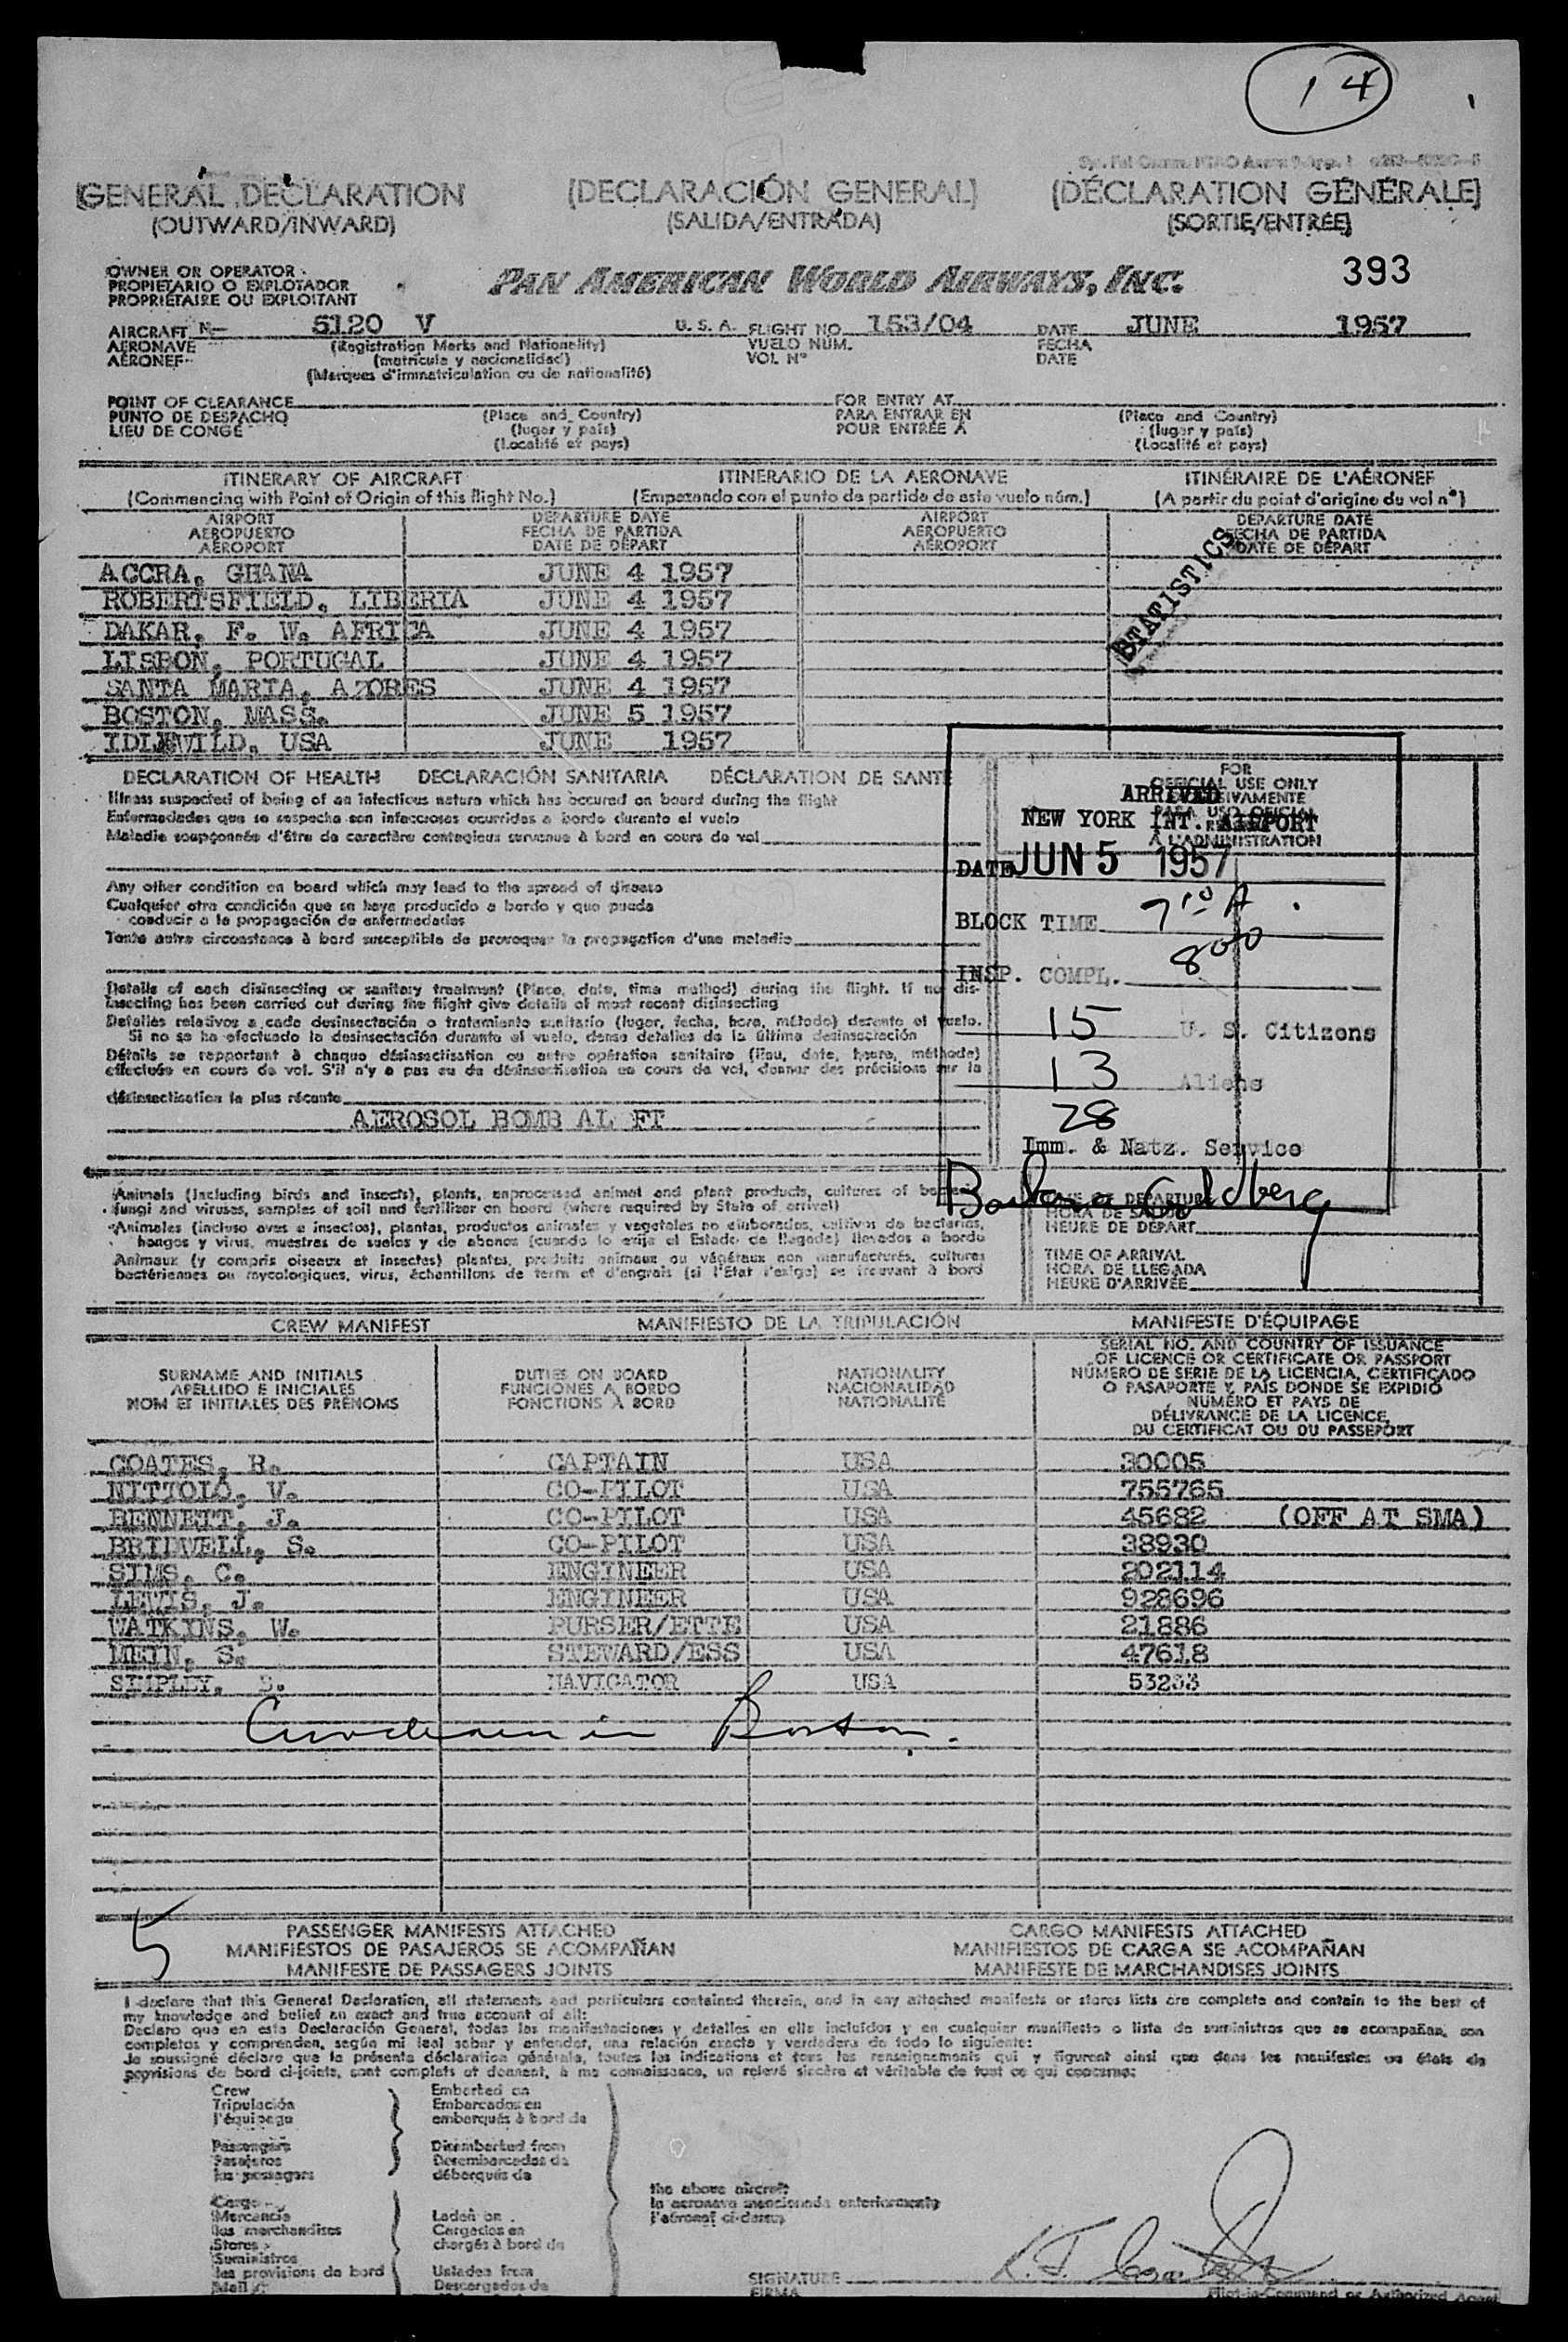 14
[GENERAL DECLARATION
(OUTWARD/INWARD)
[DECLARACIÓN GENERAL]
(SALIDA/ENTRADA)
(DÉCLARATION GÉNÉRALE]
(SORTIE/ENTRÉE)
OWNER OR OPERATOR
PROPIETARIO O EXPLOTADOR
PROPRIÉTAIRE OU EXPLOITANT
PAN AMERICAN WORLD AIRWAYS, INC.
393
AIRCRAFT N- 5120 V U. S. A.
AERONAVE
AÉRONEF
(Registration Marks and Nationality)
(matrícula y nacionalidad)
(Marques d'immatriculation ou de nationalité)
FLIGHT NO. 153/04
VUELO NÚM.
VOL Nº
DATE JUNE 1957
FECHA
DATE
POINT OF CLEARANCE
PUNTO DE DESPACHO
LIEU DE CONGÉ
(Place and Country)
(lugar y país)
(Localité et pays)
FOR ENTRY AT
PARA ENTRAR EN
POUR ENTRÉE A
(Place and Country)
(lugar y país)
(Localité et pays)
ITINERARY OF AIRCRAFT
(Commencing with Point of Origin of this flight No.)
ITINERARIO DE LA AERONAVE
(Empezando con el punto de partida de este vuelo núm.)
ITINÉRAIRE DE L'AÉRONEF
(A partir du point d'origine du vol nº)
AIRPORT
AEROPUERTO
AÉROPORT
DEPARTURE DATE
FECHA DE PARTIDA
DATE DE DÉPART
AIRPORT
AEROPUERTO
AÉROPORT
DEPARTURE DATE
FECHA DE PARTIDA
DATE DE DÉPART
ACCRA, GHANA JUNE 4 1957
ROBERTSFIELD, LIBERIA JUNE 4 1957
DAKAR, F. W. AFRICA JUNE 4 1957
LISBON, PORTUGAL JUNE 4 1957
SANTA MARIA, AZORES JUNE 4 1957
BOSTON, MASS. JUNE 5 1957
IDLEWILD, USA JUNE 1957
STATISTICS
DECLARATION OF HEALTH DECLARACIÓN SANITARIA DÉCLARATION DE SANTÉ
Illness suspected of being of an infectious nature which has occured on board during the flight
Enfermedades que se sospecha son infecciosas ocurridas a bordo durante el vuelo
Maladie soupçonnée d'être de caractère contagieux survenue à bord en cours de vol
Any other condition on board which may lead to the spread of disease
Cualquier otra condición que se haya producido a bordo y que pueda
conducir a la propagación de enfermedades
Toute autre circonstance à bord susceptible de provoquer la propagation d'une maladie
Details of each disinsecting or sanitary treatment (Place, date, time method) during the flight. If no dis-
insecting has been carried out during the flight give details of most recent disinsecting
Detalles relativos a cada desinsectación o tratamiento sanitario (lugar, fecha, hora, método) durante el vuelo.
Si no se ha efectuado la desinsectación durante el vuelo, dense detalles de la última desinsectación
Détails se rapportant à chaque désinsectisation ou autre opération sanitaire (lieu, date, heure, méthode)
effectuée en cours de vol. S'il n'y a pas eu de désinsectisation en cours de vol, donner des précisions sur la
désinsectisation la plus récente
AEROSOL BOMB AL FT
FOR
OFFICIAL USE ONLY
ARRIVED
NEW YORK INT. AIRPORT
A L'ADMINISTRATION
DATE JUN 5 1957
BLOCK TIME 7 10 A
INSP. COMPL. 8 00
15 U. S. Citizens
13 Aliens
28
Imm. & Natz. Service
Barbara Goldberg
Animals (including birds and insects), plants, unprocessed animal and plant products, cultures of bacteria,
fungi and viruses, samples of soil and fertilizer on board (where required by State of arrival)
Animales (incluso aves e insectos), plantas, productos animales y vegetales no elaborados, cultivos de bacterias,
hongos y virus, muestras de suelos y de abonos (cuando lo exija el Estado de llegada) llevados a bordo
Animaux (y compris oiseaux et insectes) plantes, produits animaux ou végétaux non manufacturés, cultures
bactériennes ou mycologiques, virus, échantillons de terre et d'engrais (si l'État l'exige) se trouvant à bord
TIME OF DEPARTURE
HORA DE SALIDA
HEURE DE DÉPART
TIME OF ARRIVAL
HORA DE LLEGADA
HEURE D'ARRIVÉE
CREW MANIFEST
MANIFIESTO DE LA TRIPULACIÓN
MANIFESTE D'ÉQUIPAGE
SURNAME AND INITIALS
APELLIDO E INICIALES
NOM ET INITIALES DES PRÉNOMS
DUTIES ON BOARD
FUNCIONES A BORDO
FONCTIONS À BORD
NATIONALITY
NACIONALIDAD
NATIONALITÉ
SERIAL NO. AND COUNTRY OF ISSUANCE
OF LICENCE OR CERTIFICATE OR PASSPORT
NÚMERO DE SERIE DE LA LICENCIA, CERTIFICADO
O PASAPORTE Y PAÍS DONDE SE EXPIDIÓ
NUMÉRO ET PAYS DE
DÉLIVRANCE DE LA LICENCE,
DU CERTIFICAT OU DU PASSEPORT
COATES, R. CAPTAIN USA 30005
NITTOLO, V. CO-PILOT USA 755765
BENNETT, J. CO-PILOT USA 45682 (OFF AT SMA)
BRIDWELL, S. CO-PILOT USA 38930
SIMS, C. ENGINEER USA 202114
LEWIS, J. ENGINEER USA 928696
WATKINS, W. PURSER/ETTE USA 21886
MEIN, S. STEWARD/ESS USA 47618
NAVIGATOR USA
in Boston.
5
PASSENGER MANIFESTS ATTACHED
MANIFIESTOS DE PASAJEROS SE ACOMPAÑAN
MANIFESTE DE PASSAGERS JOINTS
CARGO MANIFESTS ATTACHED
MANIFIESTOS DE CARGA SE ACOMPAÑAN
MANIFESTE DE MARCHANDISES JOINTS
I declare that this General Declaration, all statements and particulars contained therein, and in any attached manifests or stores lists are complete and contain to the best of
my knowledge and belief an exact and true account of all:
Declaro que en esta Declaración General, todas las manifestaciones y detalles en ella incluídos y en cualquier manifiesto o lista de suministros que se acompañan, son
completos y comprenden, según mi leal saber y entender, una relación exacta y verdadera de todo lo siguiente:
Je soussigné déclare que la présente déclaration générale, toutes les indications et tous les renseignements qui y figurent ainsi que dans les manifestes ou états de
provisions de bord ci-joints, sont complets et donnent, à ma connaissance, un relevé sincère et véritable de tout ce qui concerne:
Crew
Tripulación
l'équipage
Passengers
Pasajeros
les passagers
Cargo
Mercancía
les marchandises
Stores
Suministros
les provisions de bord
Mail
Embarked on
Embarcados en
embarqués à bord de
Disembarked from
Desembarcados de
débarqués de
Laden on
Cargados en
chargés à bord de
Unladen from
Descargados de
the above aircraft
la aeronave mencionada anteriormente
l'aéronef ci-dessus
SIGNATURE
FIRMA
Pilot-in-Command or Authorized Agent